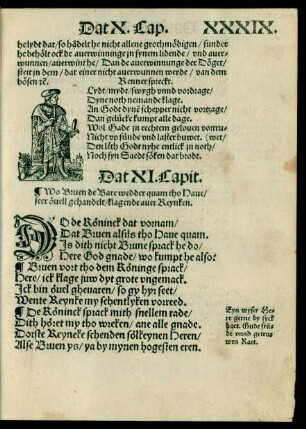 Dat X. Cap. XXXIX.
heydt dat / so hādelt he nicht allene grothmödigen / sunder
he beholt ock de auerwinninge in synem lidende / vnd auer-
wunnen / auerwint he / Dan de auerwunninge der Döget /
steit in dem / dat einer nicht auerwunnen werde / van dem
bösen rē. Renner spreckt.
Lydt / mydt / swygh vnnd vordrage /
Dyne noth nemande klage.
An Gode dynē schepper nicht vortzage /
Dan gelücke kumpt alle dage.
Wol Gade in rechtem gelouen vortru-
Nicht vp sünde vnd laster buwet. (wet /
Den lēth Godt nyhe entlick in noth /
Noch syn Saedt söken dar brodt.
Dat XI. Capit.
¶ Wo Bruen de Bare wedder quam tho Haue /
seer öuell gehandelt / klagende auer Reynken.
DO de Köninck dat vornam /
Dat Bruen alsüs tho Haue quam.
Is dith nicht Brune sprack he do /
Here God gnade / wo kumpt he also?
¶ Bruen vort tho dem Köninge sprack /
Here / ick klage juw dyt grote vngemack.
Ick bin öuel gheuaren / so gy hyr seet /
Wente Reynke my schentlyken vorreed.
¶ De Köninck sprack mith snellem rade /
Dith höret my tho wreken / ane alle gnade.
Dorste Reyncke schenden sölkeynen Heren /
Alse Bruen ys / ya by mynen hogesten eren.
Eyn wyser He-
re gerne by syck
hatt. Gude frün-
de vnnd getru-
wen Raet.